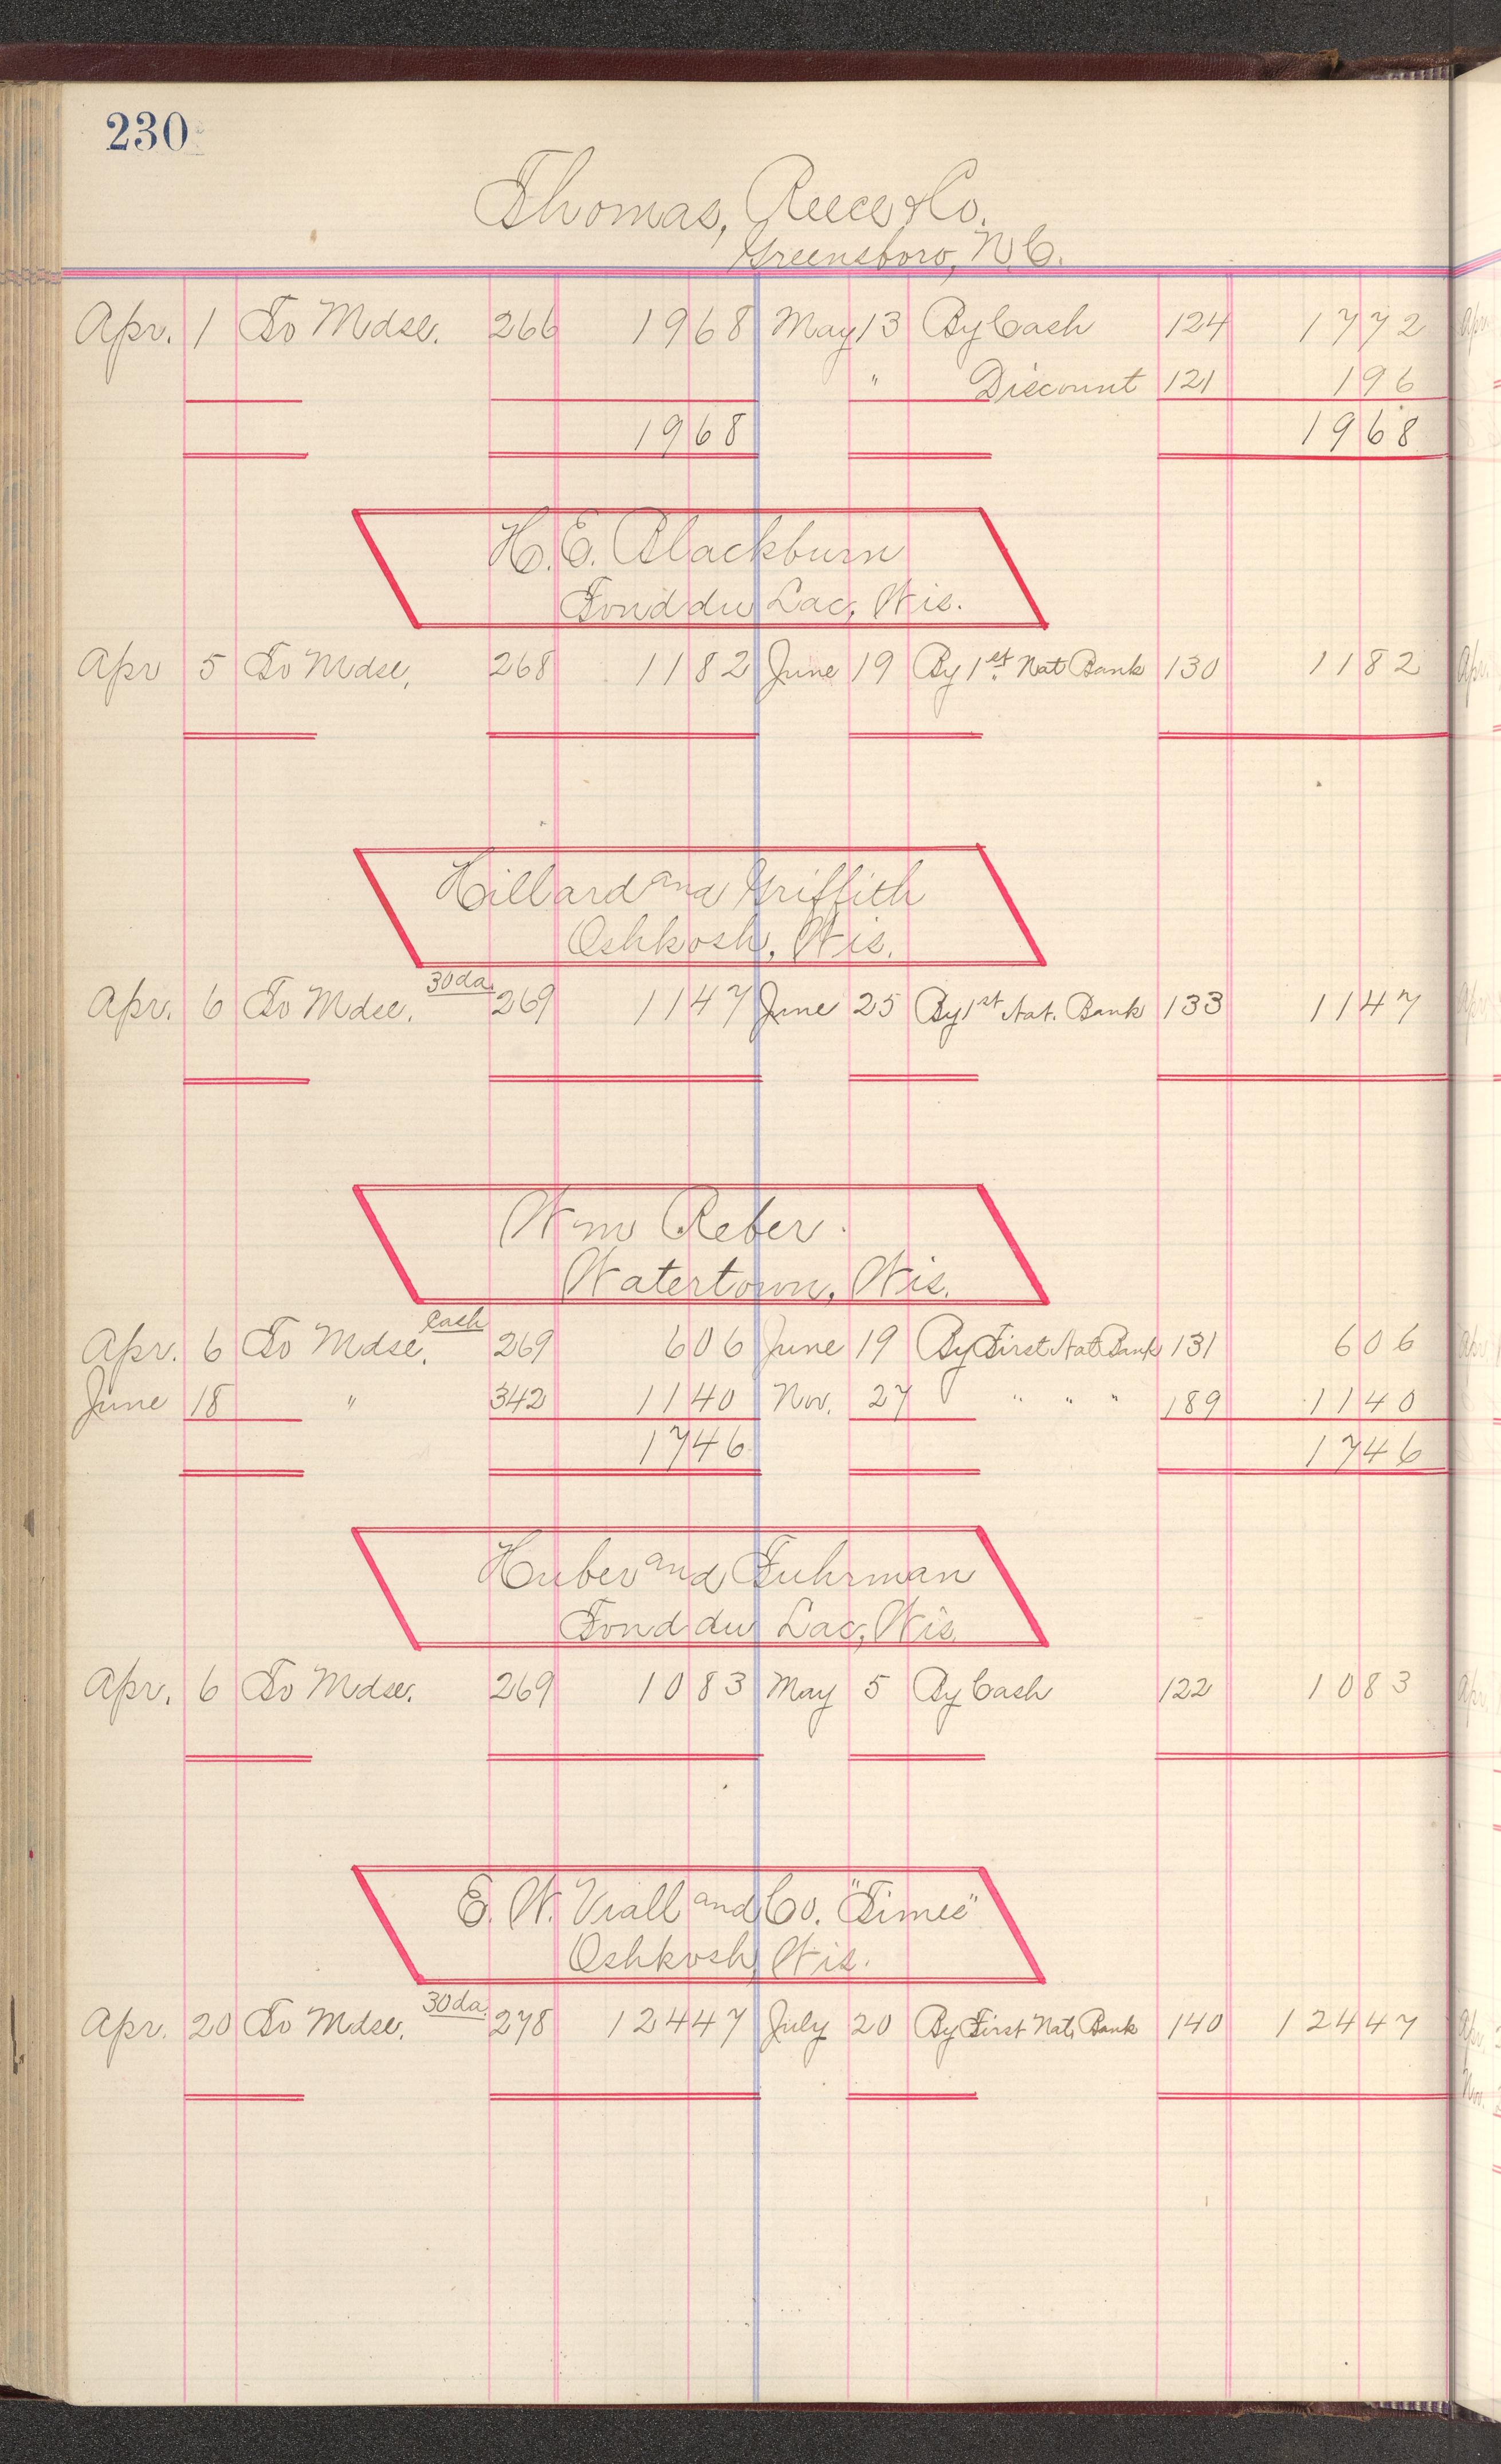 230
Thomas, Reece & Co.
Greensboro, N.C.
Apr. 1 To Mdse. 266 1968 May 13 By Cash 124 1772
" Discount 121 196
1968 1968
H. E. Blackburn
Fond du Lac, Wis.
Apr 5 To Mdse, 268 1182 June 19 By 1st Nat Bank 130 1182
Hillard and Griffith
Oshkosh, Wis.
Apr. 6 To Mdse. 30 da. 269 1147 June 25 By 1st Nat. Bank 133 1147
Wm Reber.
Watertown, Wis.
Apr. 6 To Mdse. Cash 269 606 June 19 By First Nat Bank 131 606
June 18 " 342 1140 Nov. 27 " " " 189 1140
1746 1746
Huber and Fuhrman
Fond du Lac, Wis.
Apr. 6 To Mdse. 269 1083 May 5 By Cash 122 1083
E. W. Viall and Co. "Times"
Oshkosh Wis.
Apr. 20 To Mdse. 30 da. 278 12447 July 20 By First Nat. Bank 140 12447